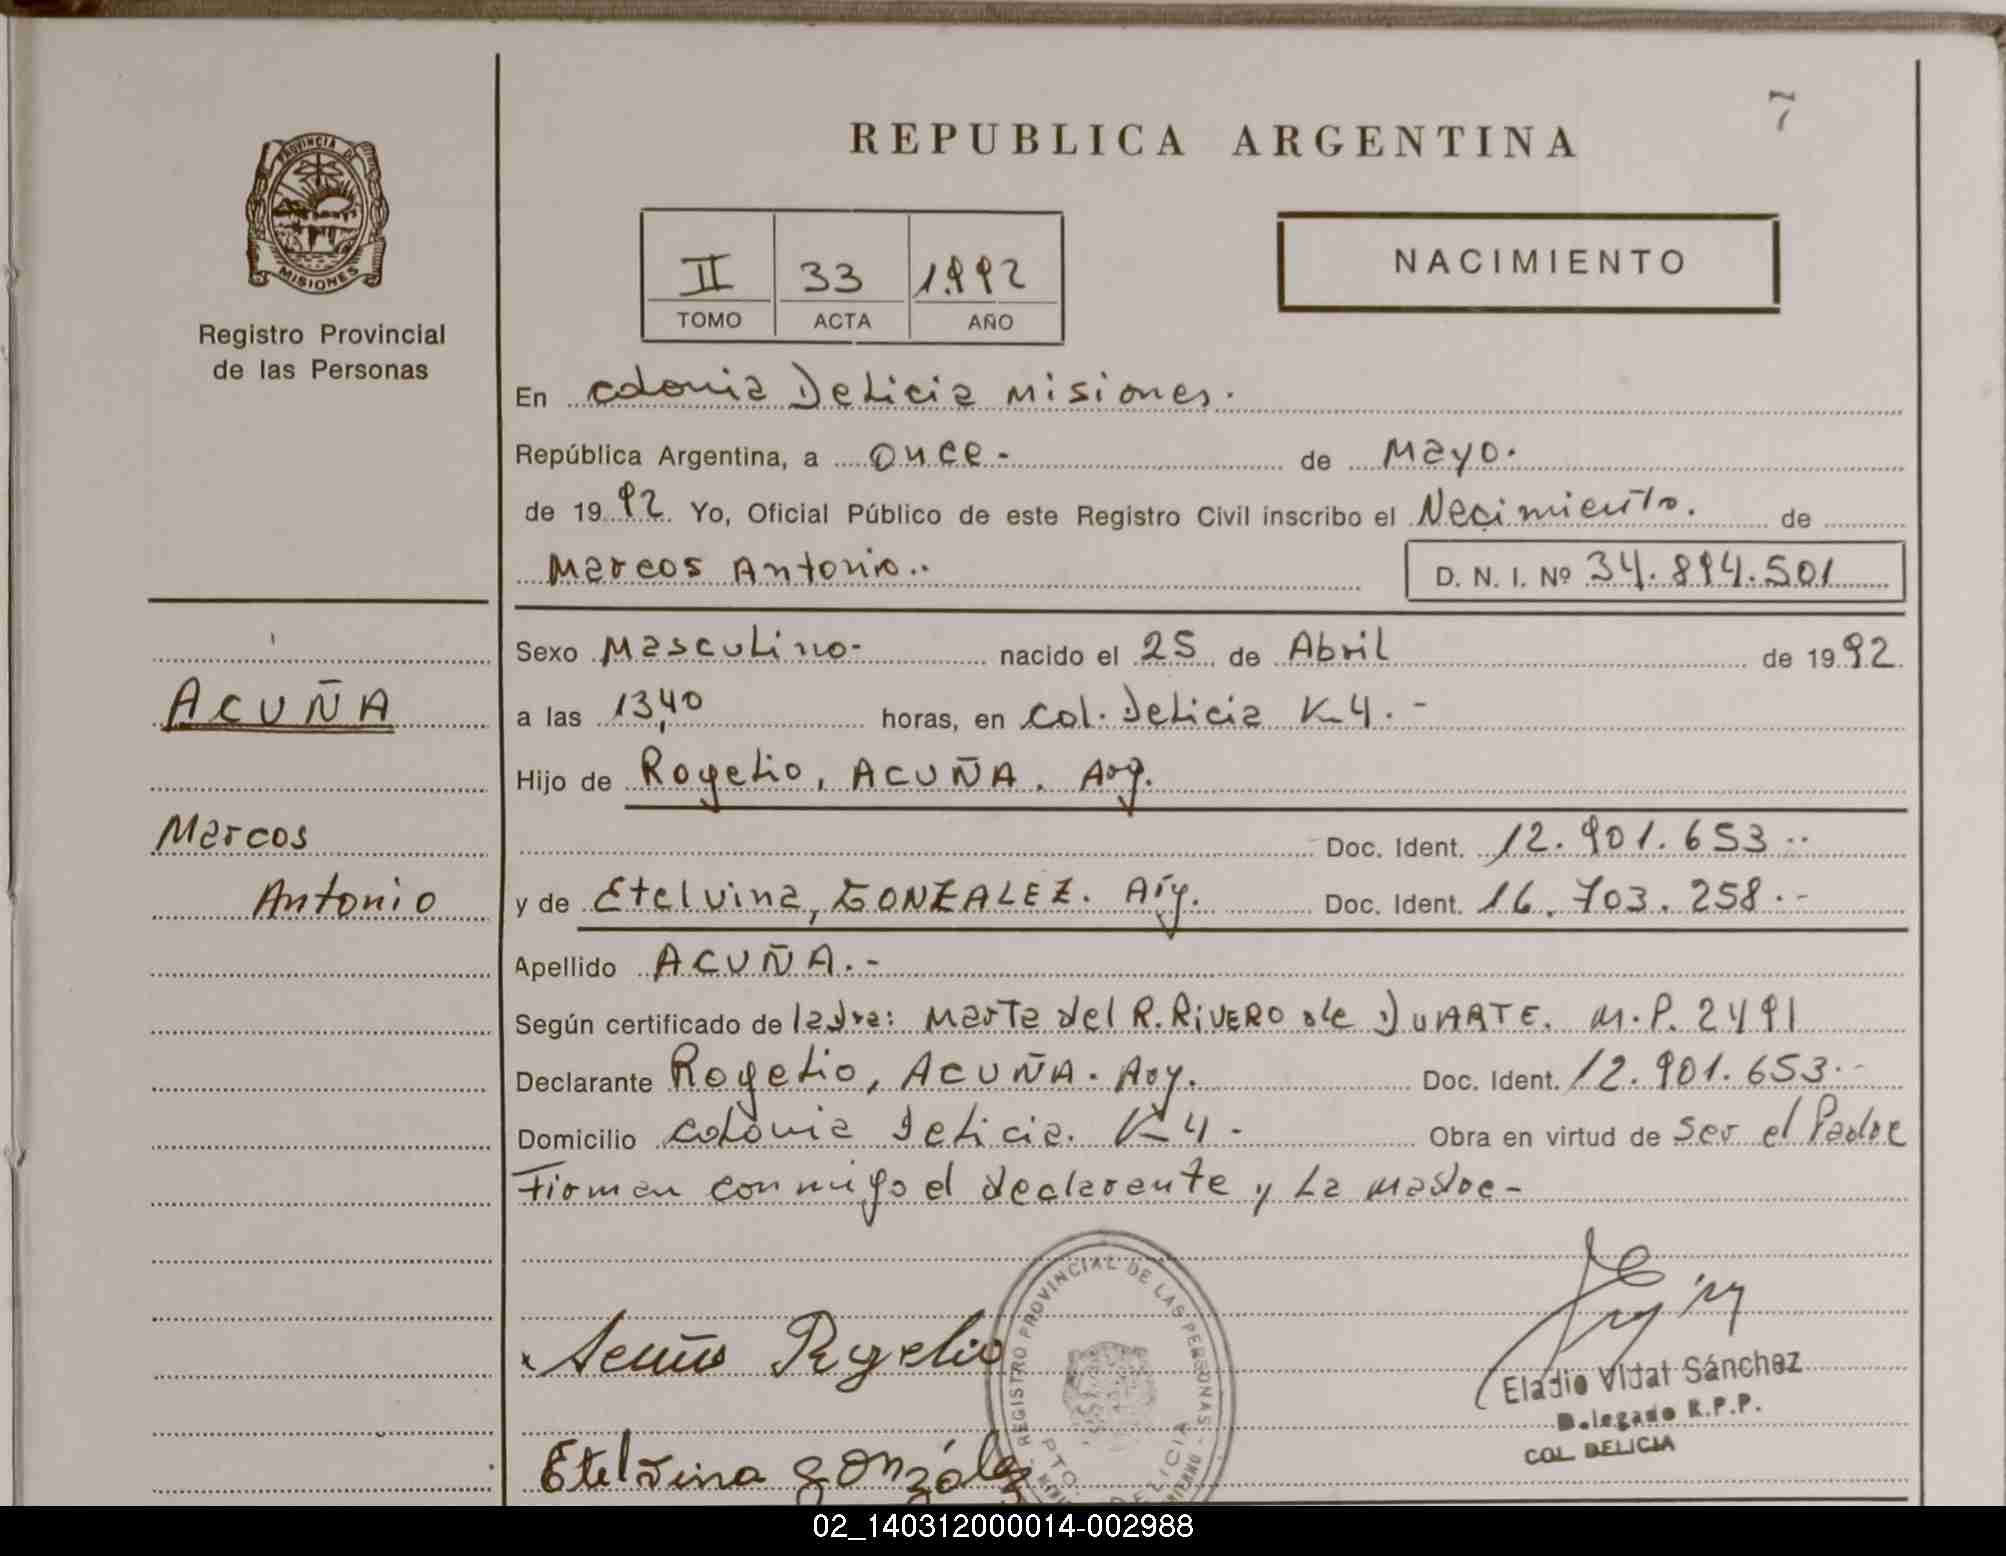 7
REPUBLICA ARGENTINA
PROVINCIA DE
MISIONES
Registro Provincial
de las Personas
II 33 1992
TOMO ACTA AÑO
NACIMIENTO
En Colonia Delicia Misiones.
República Argentina, a once - de Mayo.
de 1992. Yo, Oficial Público de este Registro Civil inscribo el Nacimiento. de
Marcos Antonio..
D. N. I. Nº 34.894.501
Sexo Masculino- nacido el 25 de Abril de 1992.
ACUÑA
a las 13,40 horas, en Col. Delicia K-4. -
Hijo de Rogelio, ACUÑA. Arg.
Marcos
Doc. Ident. 12.901.653 --
Antonio
y de Etelvina, GONZALEZ. Arg. Doc. Ident. 16.703.258.--
Apellido ACUÑA.-
Según certificado de ladra: Marta del R. RIVERO de DUARTE. M.P. 2491
Declarante Rogelio, ACUÑA. Arg. Doc. Ident. 12.901.653.-
Domicilio Colonia Delicia. K 4 - Obra en virtud de ser el Padre
Firman conmigo el declarante y La madre-
x Acuña Rogelio
REGISTRO PROVINCIAL DE LAS PERSONAS -
PTO. DELICIA
Eladio Vidal Sánchez
Delegado R.P.P.
COL. DELICIA
Etelvina gonzález
02_140312000014-002988